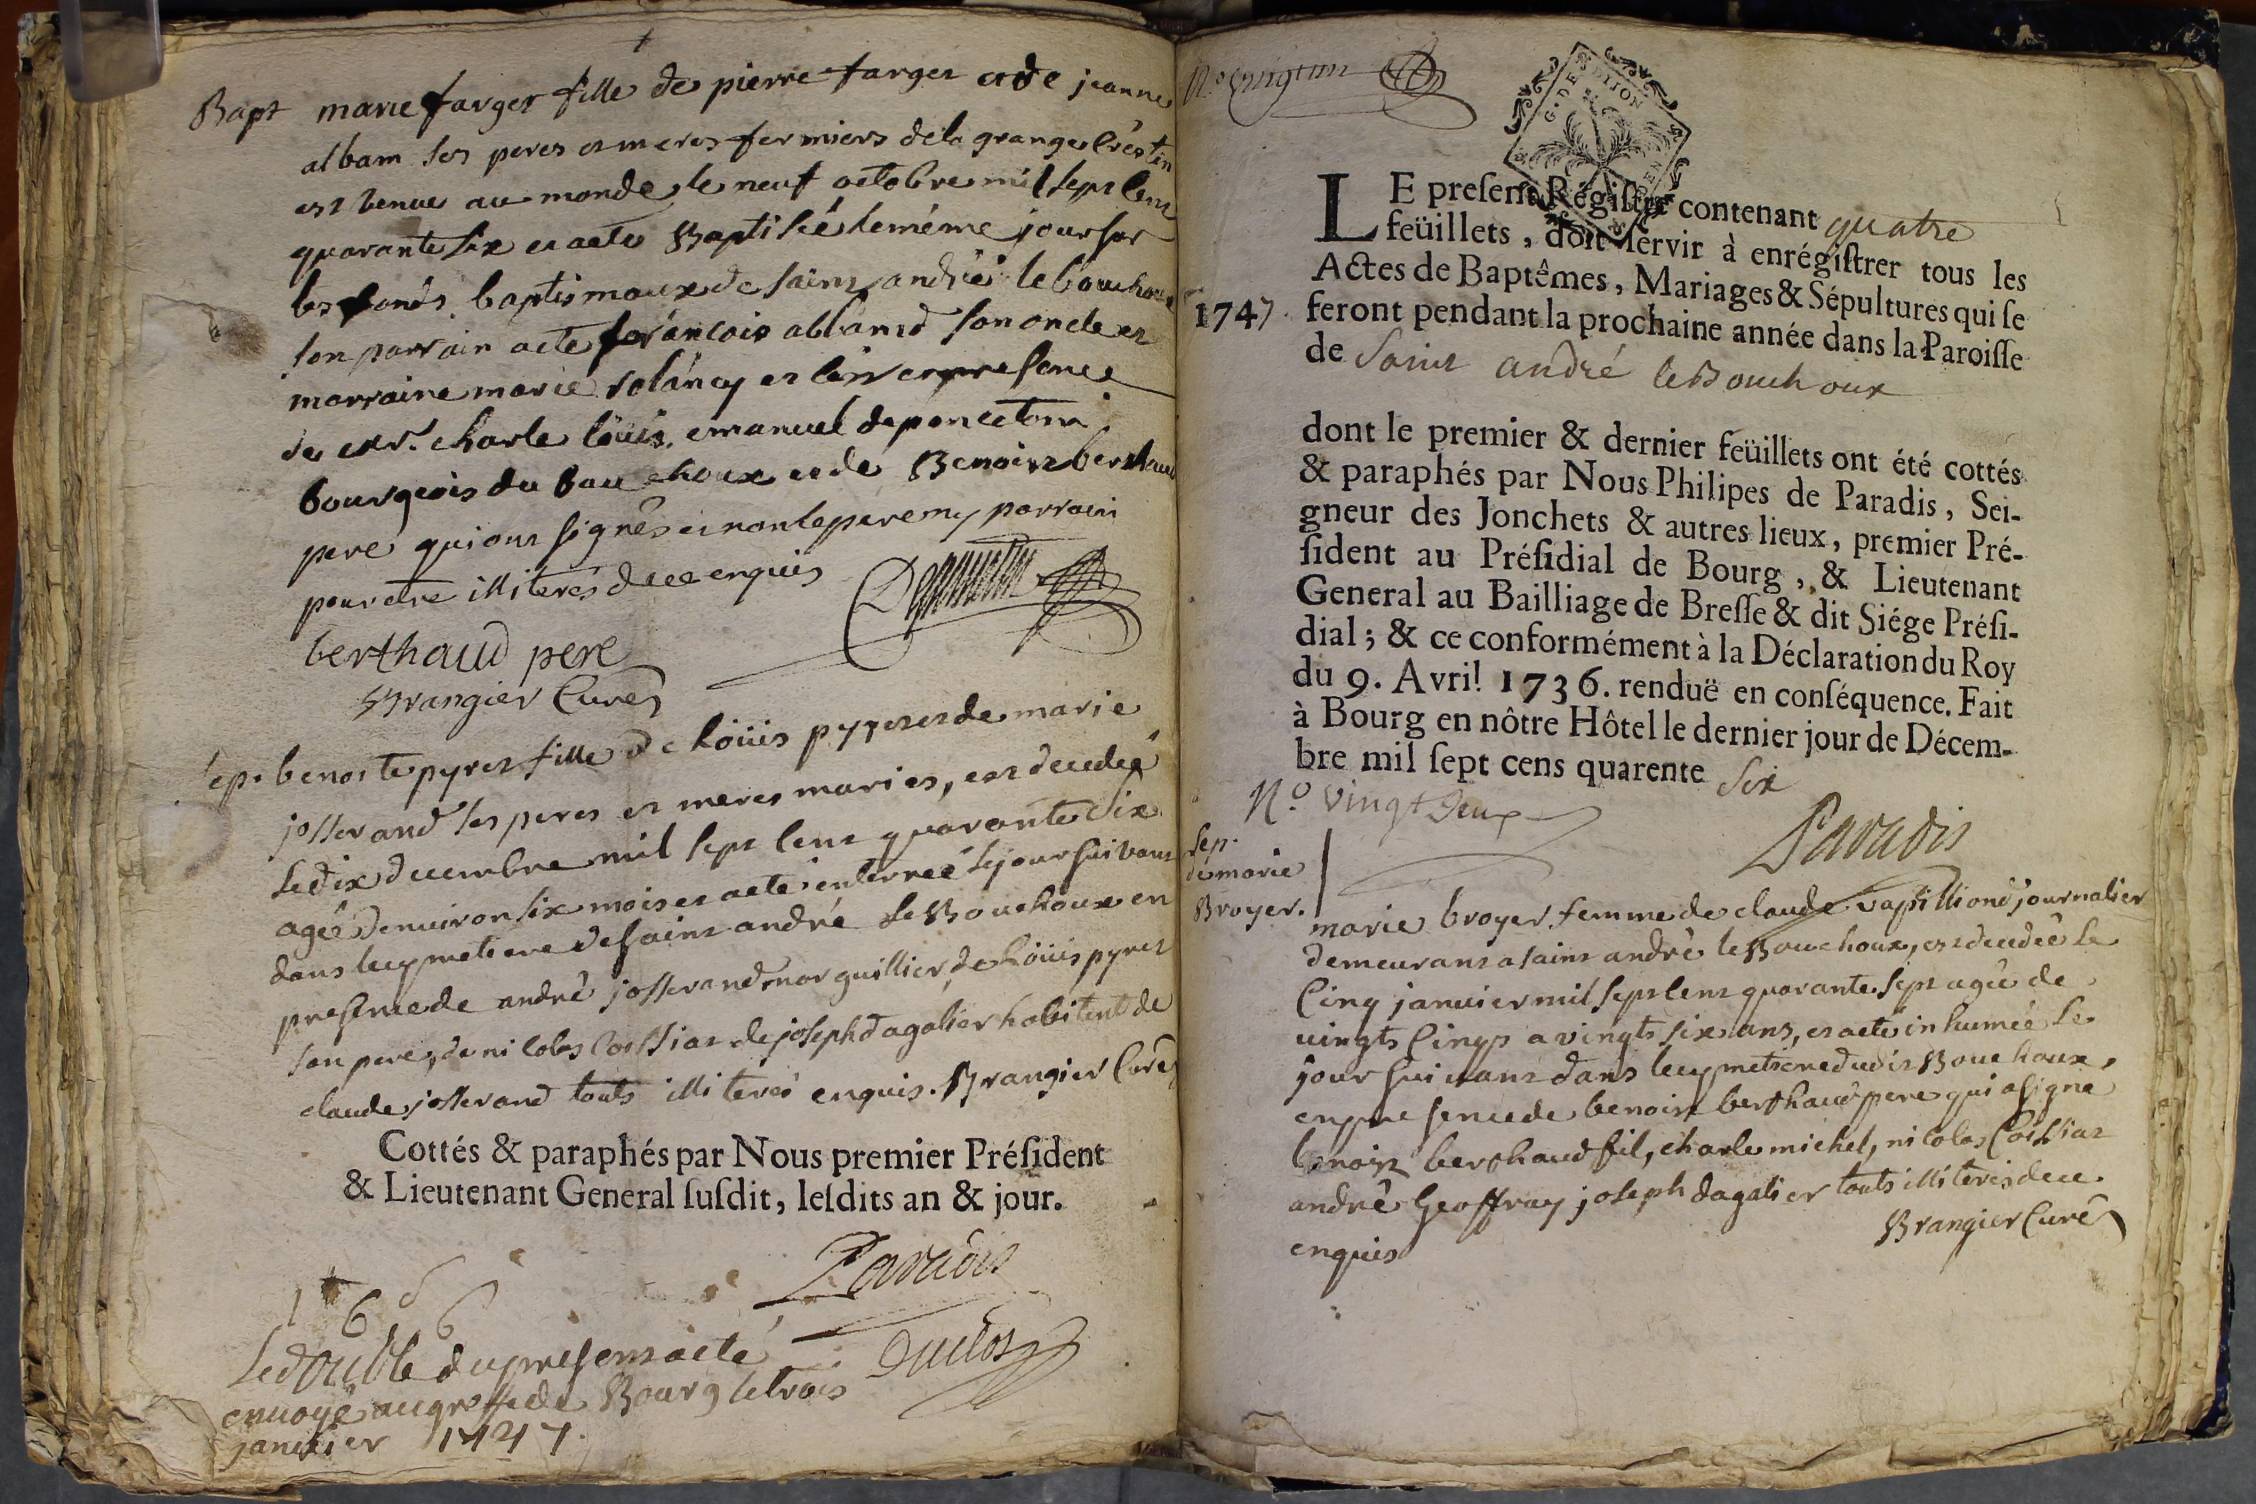 Bapt marie farget fille de pierre farget et de jeanne
albam ses peres et meres fermiers de la grange
est venue au monde le neuf octobre mil sept cent
quarante six et a ete Baptiseé le méme jour sur
les fonds baptismaux de saint andrié le bouchoux
son parrain a ete francois alband son oncle et
marraine marie et en presence
de charle loüis emanuel deponceton
bourgeois du bouchoux et de Benoist berthaud
pere qui ont signés et non le pere ny parrain
pour etre illiterés de ce enquis
berthaud pere
Brangier Curé
sep. benoite pyret fille de loüis pyret et de marie
josserand ses peres et meres maries, est decedeé
le dix decembre mil sept cent quarante six
ageé denuiron six mois et a ete enterreé le jour suivant
dans le cymetiere de saint andré le Bouchoux en
presence de andré josserand marguillier, de loüis pyret
son pere, de nicolas de joseph dagalier habitent de
claude josserand touts illiterés enquis. Brangier Curé
Cottés & paraphés par Nous premier Préſident
& Lieutenant General ſuſdit, leſdits an & jour.
Paradis
1 6 6
Le double du present acté Duclos
envoyé au greffe de Bourg le trois
janvier 1747.
G. DE DIJON
LE preſent Régiſtre contenant quatre
feüillets, doit ſervir à enrégiſtrer tous les
Actes de Baptêmes, Mariages & Sépultures qui ſe
1747. feront pendant la prochaine année dans la Paroiſſe
de Saint andré le Bouchoux
dont le premier & dernier feüillets ont été cottés
& paraphés par Nous Philipes de Paradis, Sei-
gneur des Jonchets & autres lieux, premier Pré-
ſident au Préſidial de Bourg, & Lieutenant
General au Bailliage de Breſſe & dit Siége Préſi-
dial; & ce conformément à la Déclaration du Roy
du 9. Avril 1736. renduë en conſéquence. Fait
à Bourg en nôtre Hôtel le dernier jour de Décem-
bre mil ſept cens quarente six
N.o vingt deux
Paradis
Sep.
de marie
Broyer.
marie broyer femme de claude vapilliond journalier
demeurant a saint andré le Bouchoux, est decedeé le
Cinq januier mil sept cent quarante sept ageé de
vingts Cinqs a vingts six ans, et a ete inhumeé le
jour suivant dans le cymetiere dudit Bouchoux,
en presence de benoist berthaud pere qui a signé
benoist berthaud fil, charle michel, nicolas
andré Geoffray joseph dagalier touts illiterés de ce
enquis Brangier Curé